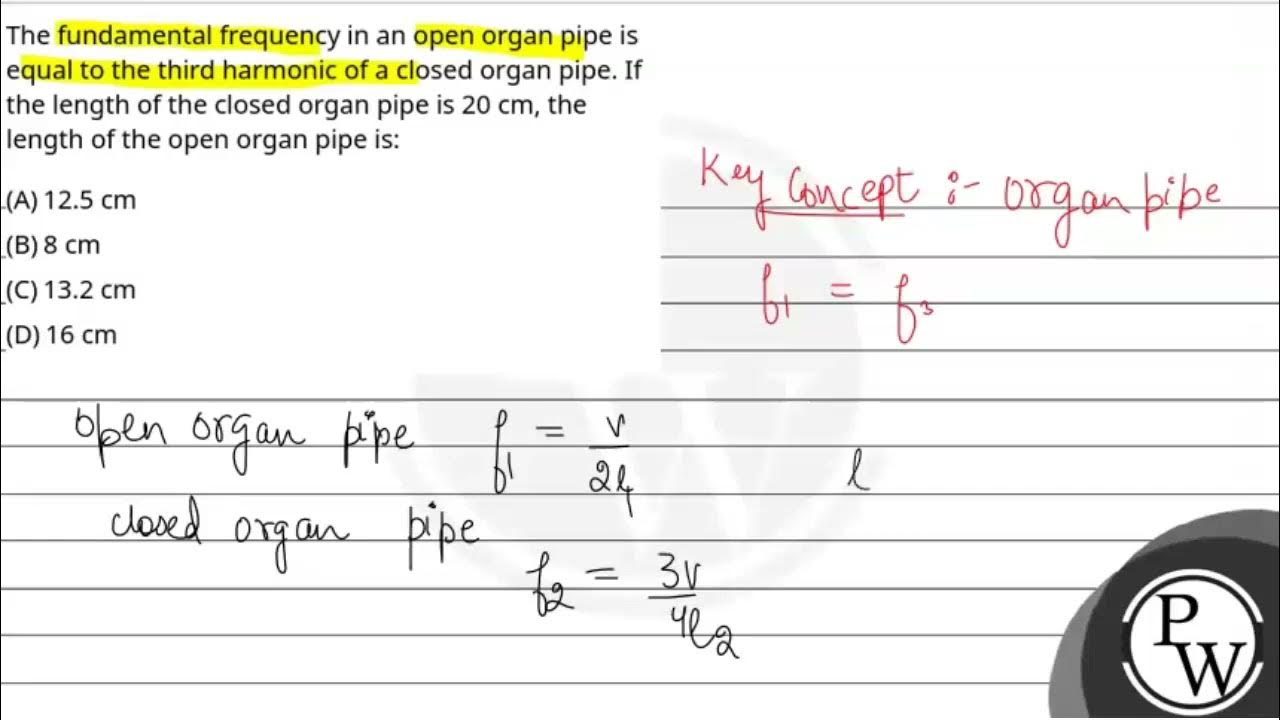 The fundamental frequency in an open organ pipe is
equal to the third harmonic of a closed organ pipe. If
the length of the closed organ pipe is 20 cm, the
length of the open organ pipe is:
(A) 12.5 cm
(B) 8 cm
(C) 13.2 cm
(D) 16 cm
Key Concept :- organ pipe
f1 = f3
open organ pipe f1 = v/2l1
l
closed organ pipe
f2 = 3v/4l2
PW